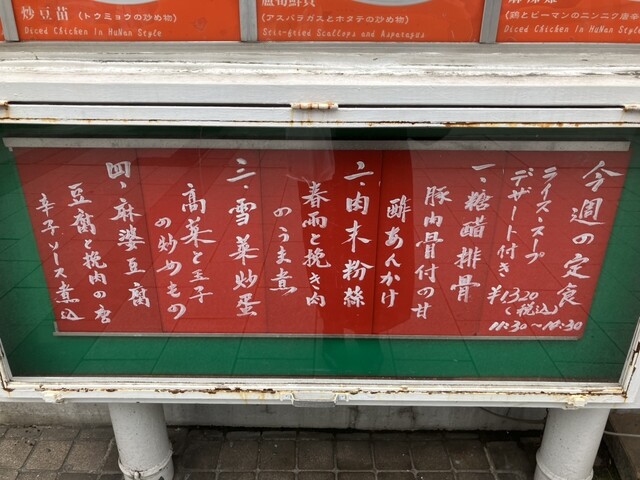 炒豆苗 (トウミョウの炒め物)
Diced Chicken In HuNan Style
(アスパラガスとホタテの炒め物)
Stir-fried Scallops and Asparagus
Diced Chicken In HuNan Style
今週の定食
ライス・スープ
デザート付き
¥1320
(税込)
11:30~14:30
一、糖醋排骨
豚肉骨付の甘
酢あんかけ
二、肉末粉絲
春雨と挽き肉
のうま煮
三、雪菜炒蛋
高菜と玉子
の炒めもの
四、麻婆豆腐
豆腐と挽肉の唐
辛子ソース煮込